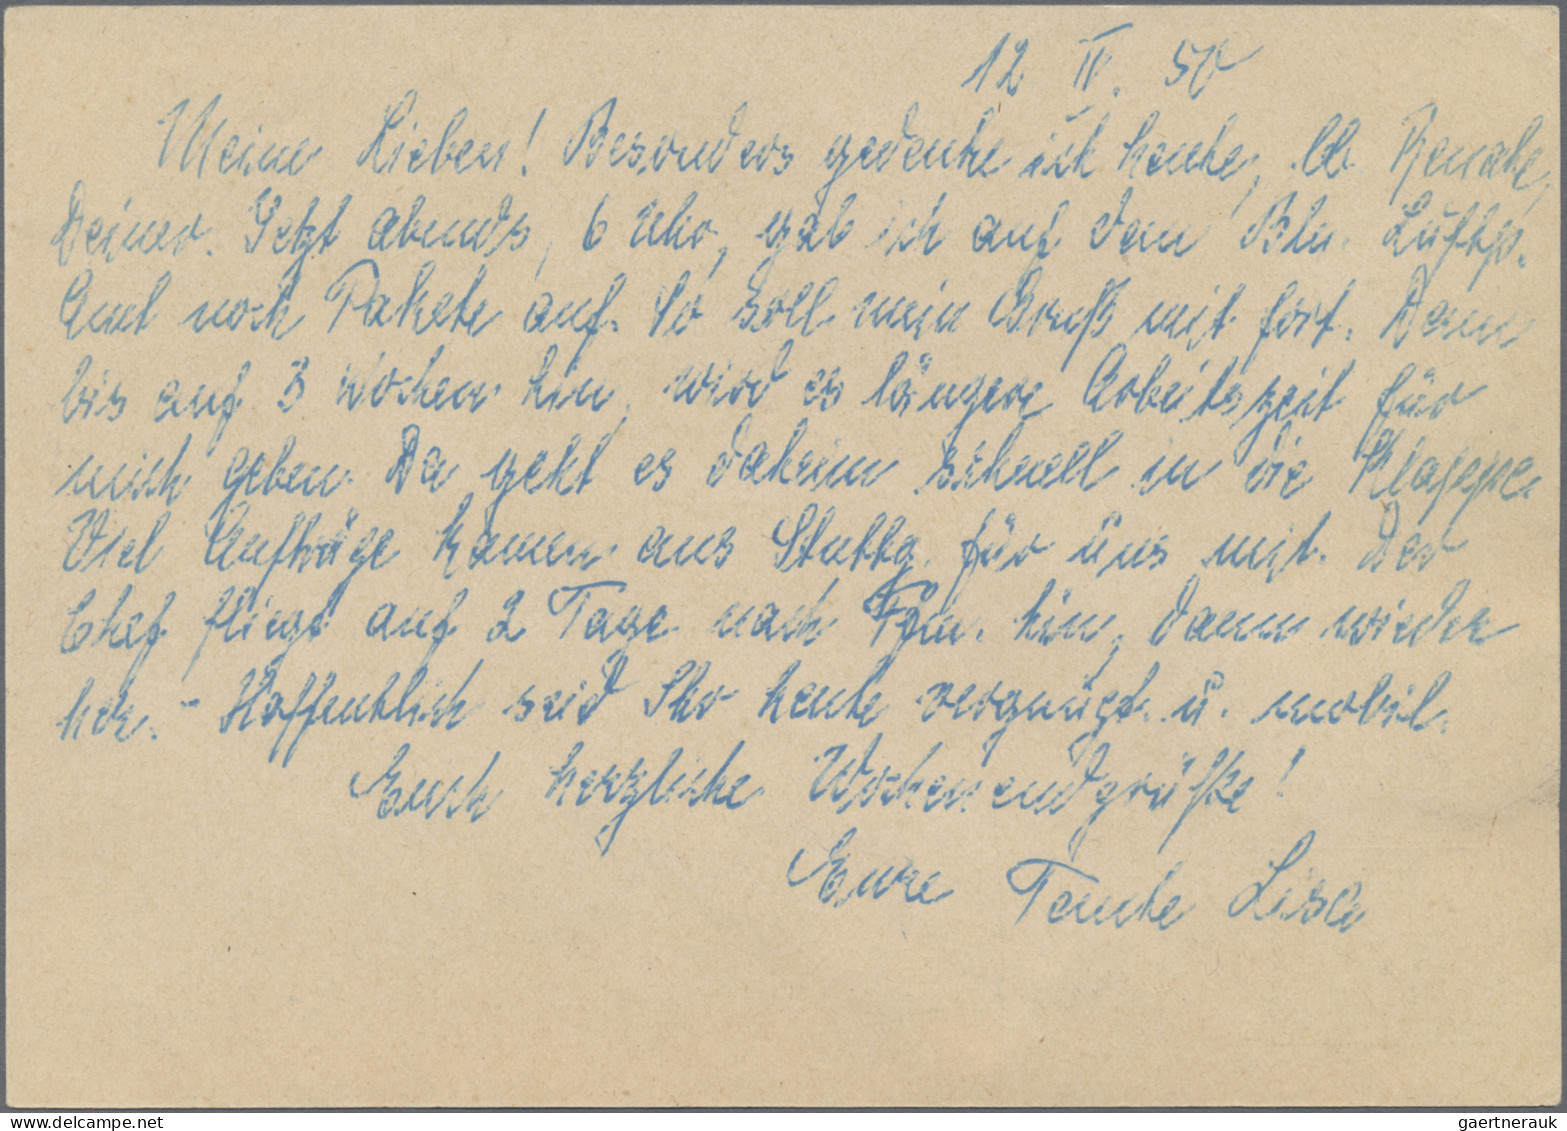 12 IV. 50
Meine Lieben! Besonders gedenke ich heute, lb. Renate,
Deiner. Jetzt abends, 6 Uhr, gab ich auf dem Bln. Luftp.
Amt noch Pakete auf. So soll mein Gruß mit fort. Denn
bis auf 3 Wochen hin, wird es längere Arbeitszeit für
mich geben. Da geht es daheim schnell in die Klappe.
Viel Aufträge kamen aus Stuttg. für uns mit. Der
Chef fliegt auf 2 Tage nach hin, dann wieder
her. - Hoffentlich seid Ihr heute vergnügt u. mobil.
Euch herzliche Wochenendgrüße!
Eure Tante Lisa
gaertnerauk